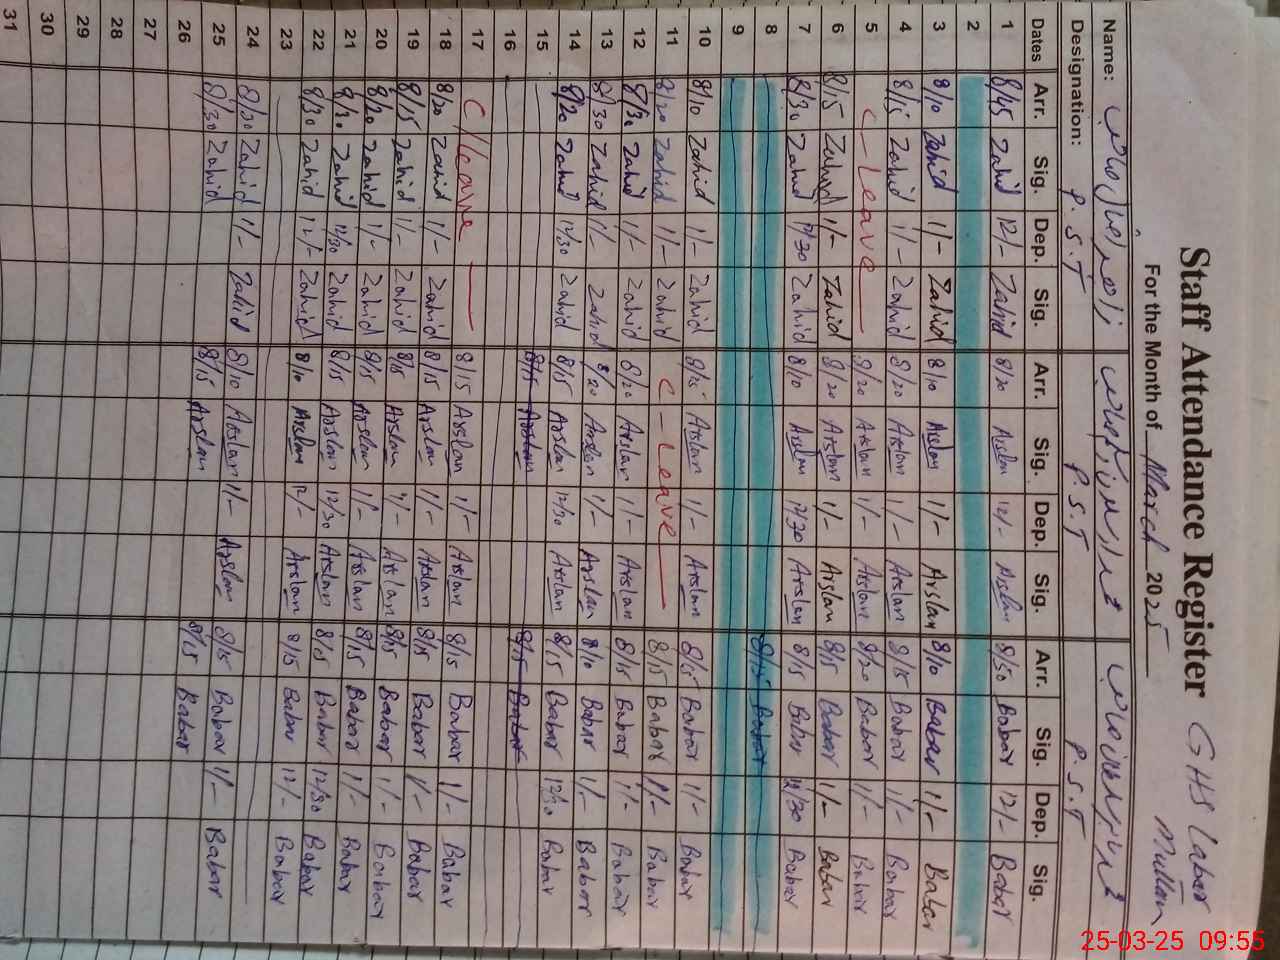 Staff Attendance Register GHS Labar Multan
For the Month of March 2025
Name:
Designation: P.S.T P.S.T P.S.T
Dates Arr. Sig. Dep. Sig. Arr. Sig. Dep. Sig. Arr. Sig. Dep. Sig.
1 8/45 Zahid 12/- Zahid 8/20 Arslan 12/- Arslan 8/50 Babar 12/- Babar
2
3 8/10 Zahid 1/- Zahid 8/10 Arslan 1/- Arslan 8/10 Babar 1/- Babar
4 8/15 Zahid 1/- Zahid 8/20 Arslan 1/- Arslan 8/15 Babar 1/- Babar
5 C-Leave 8/20 Arslan 1/- Arslan 8/20 Babar 1/- Babar
6 8/15 Zahid 1/- Zahid 8/20 Arslan 1/- Arslan 8/15 Babar 1/- Babar
7 8/30 Zahid 12/30 Zahid 8/10 Arslan 12/30 Arslan 8/15 Babar 12/30 Babar
8 8/15 Babar
9
10 8/10 Zahid 1/- Zahid 8/15 Arslan 1/- Arslan 8/15 Babar 1/- Babar
11 8/20 Zahid 1/- Zahid C-Leave 8/15 Babar 1/- Babar
12 8/30 Zahid 1/- Zahid 8/20 Arslan 1/- Arslan 8/15 Babar 1/- Babar
13 8/30 Zahid 1/- Zahid 8/20 Arslan 1/- Arslan 8/10 Babar 1/- Babar
14 8/20 Zahid 12/30 Zahid 8/15 Arslan 12/30 Arslan 8/15 Babar 12/30 Babar
15 8/15 Arslan 8/15 Babar
16
17 C/leave 8/15 Arslan 1/- Arslan 8/15 Babar 1/- Babar
18 8/20 Zahid 1/- Zahid 8/15 Arslan 1/- Arslan 8/15 Babar 1/- Babar
19 8/15 Zahid 1/- Zahid 8/15 Arslan 1/- Arslan 8/15 Babar 1/- Babar
20 8/20 Zahid 1/- Zahid 8/15 Arslan 1/- Arslan 8/15 Babar 1/- Babar
21 8/20 Zahid 12/30 Zahid 8/15 Arslan 12/30 Arslan 8/15 Babar 12/30 Babar
22 8/30 Zahid 12/- Zahid 8/10 Arslan 12/- Arslan 8/15 Babar 12/- Babar
23
24 8/30 Zahid 1/- Zahid 8/10 Arslan 1/- Arslan 8/15 Babar 1/- Babar
25 8/30 Zahid 8/15 Arslan 8/15 Babar
26
27
28
29
30
31
25-03-25 09:55